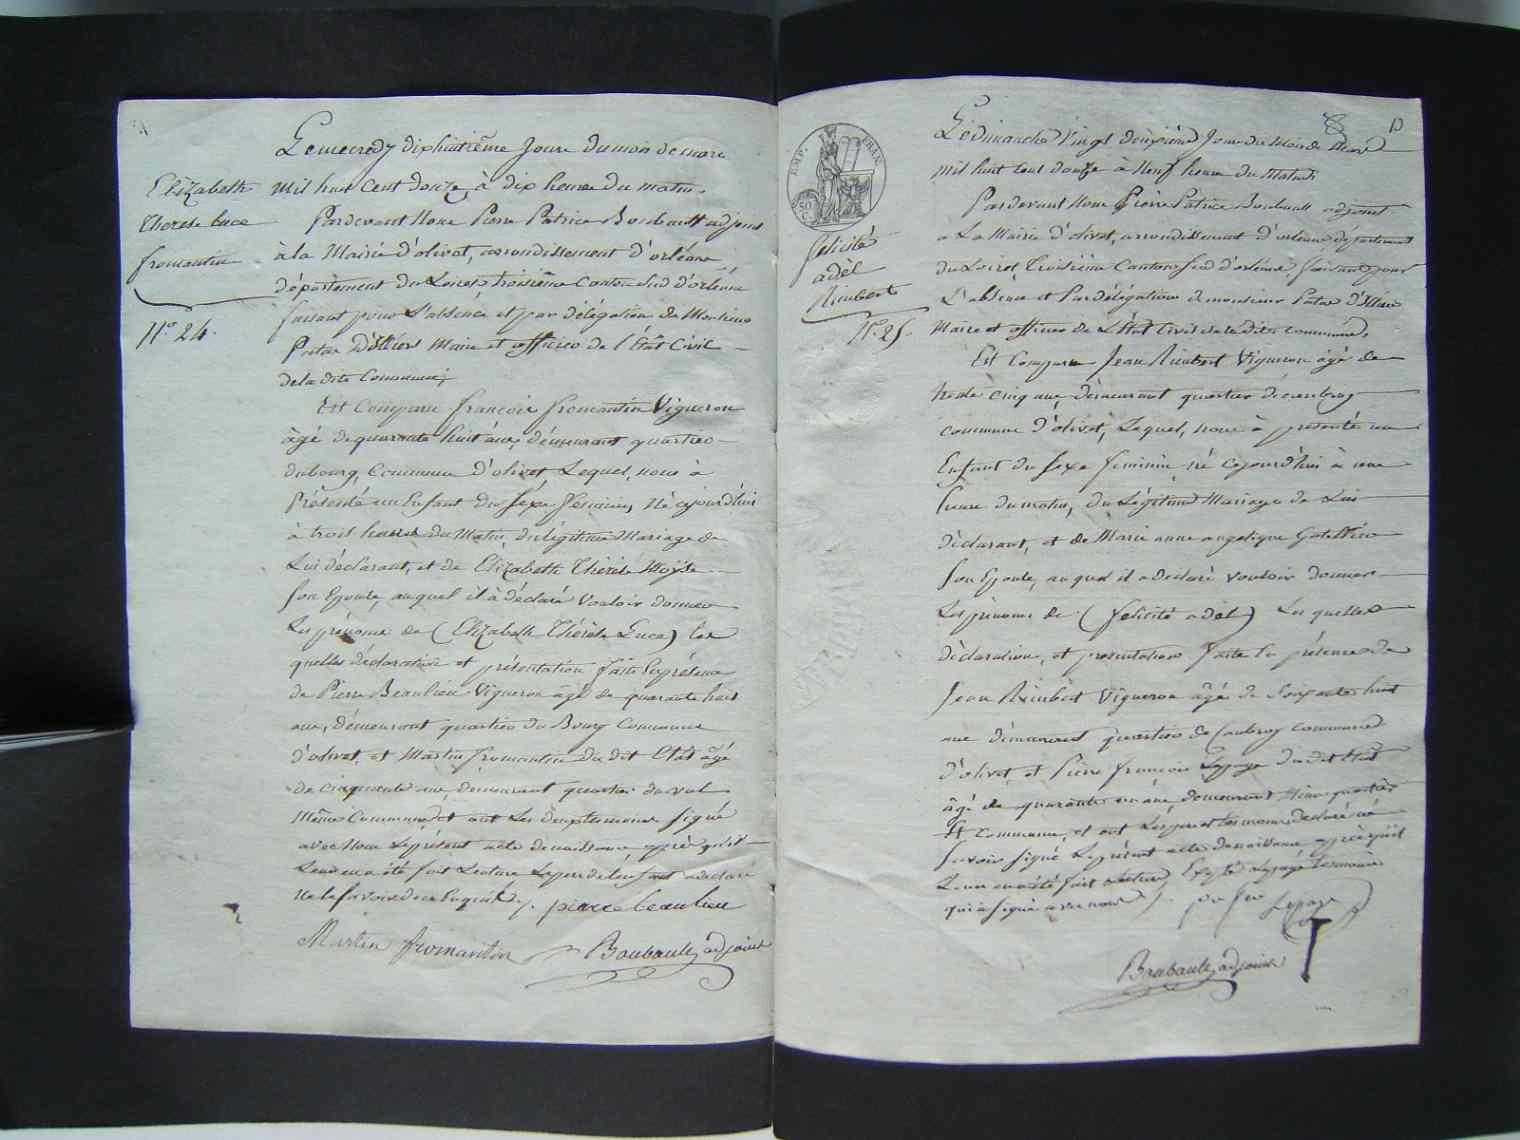 Elizabeth
Therese Luce
fromantin
N.º 24.
Le mecredy dixhuitième Jour du mois de mars
mil huit Cent douze à dix heures du matin.
Pardevant Nous Pierre Patrice Boubault adjoint
à la Mairie d'olivet, arrondissement d'orléans
Département du Loiret, troisième Canton Sud d'orléans
faisant pour L'absence et par délégation de Monsieur
Patas D'illiers Maire et officier de l'État Civil
de la dite Commune;
Est Comparu françois fromantin Vigneron
âgé de quarante huit ans, démeurant quartier
du bourg, Commune d'olivet, Lequel, nous à
Présenté un Enfant du séxe féminin, Né cejourd'hui
à trois heures du Matin, du légitime Mariage de
Lui déclarant, et de Elizabeth Thérèse
son Epouse, auquel il à déclaré Vouloir donner
Les prénoms de (Elizabeth Thérèse Luce) les
quelles déclaration et présentation faite En présence
de Pierre Beaulieu Vigneron âgé de quarante huit
ans, démeurant quartier du Bourg Commune
d'olivet, et Martin fromantin du dit Etat âgé
de cinquante ans, demeurant quartier du val
Même Commune, et ont Les deux temoins signé
avec Nous Le présent acte de naissance après qu'il
Leur en a été fait Lecture Le pere de l'enfant a déclaré
Ne le savoir de ce Enquis. pierre beaulieu
Martin fromantin Boubault adjoint
8 13
EMP. FRAN.
50 C.
félicité
adèl
Rimbert
N.º 25.
Le dimanche Vingt deuxième Jour du Mois de Mars
mil huit Cent douze à Neuf heures du Matin
Pardevant Nous Pierre Patrice Boubault adjoint
a La Mairie d'olivet, arrondissement d'orléans département
du Loiret, Troisième Canton Sud d'orléans, faisant pour
L'absence et Par délégation de monsieur Patas d'illiers
Maire et officier de L'État Civil de la dite Commune,
Est Comparu Jean Rimbert Vigneron âgé de
trente cinq ans, démeurant quartier de
commune d'olivet, Lequel, nous à présenté un
Enfant du sexe féminin né cejourd'hui à une
heure du matin, du Légitime Mariage de Lui
déclarant, et de Marie anne angelique
son Epouse, auquel il a déclaré vouloir donner
Les prénoms de (félicité adèl) Les quelles
déclaration, et présentation faite En présence de
Jean Rimbert Vigneron âgé de soixante huit
ans démeurant quartier de commune
d'olivet, et Pierre françois Lepage du dit Etat
âgé de quarante un ans, demeurant même quartier
Et commune, et ont Les pere et temoins déclaré ne
savoir signé Le présent acte de naissance après qu'il
Leur en a été fait Lecture, Excepté Lepage temoin
qui a signé avec nous Lepage
Boubault adjoint